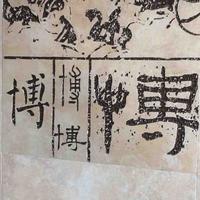 博
博
博
博